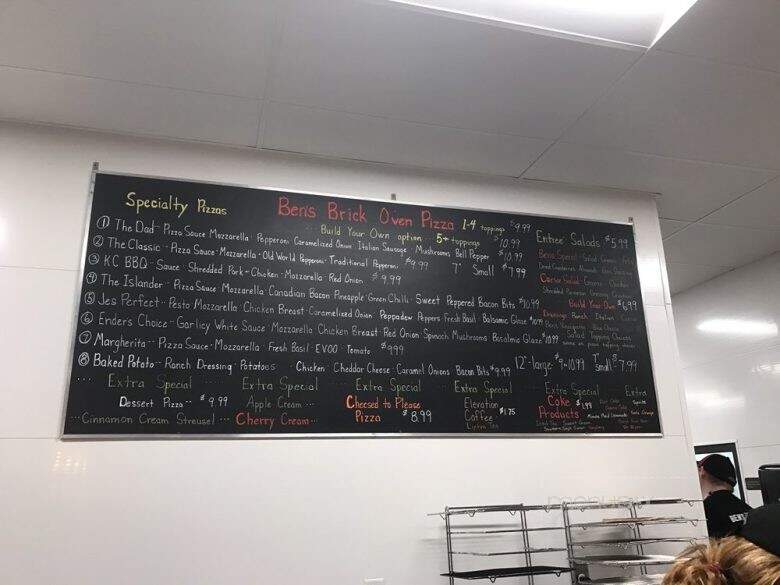 Specialty Pizzas
Ben's Brick Oven Pizza
Build Your Own option
1-4 toppings $9.99
5+ toppings $10.99
① The Dad - Pizza Sauce Mozzarella Pepperoni Caramelized Onion Italian Sausage Mushrooms Bell Pepper $10.99
② The Classic - Pizza Sauce Mozzarella Old World Pepperoni Traditional Pepperoni $9.99
7" Small $7.99
③ KC BBQ - Sauce Shredded Pork Chicken Mozzarella Red Onion $9.99
④ The Islander - Pizza Sauce Mozzarella Canadian Bacon Pineapple Green Chilli Sweet Peppered Bacon Bits $10.99
⑤ Jes Perfect - Pesto Mozzarella Chicken Breast Caramelized Onion Peppadew Peppers Fresh Basil Balsamic Glaze $10.99
⑥ Ender's Choice - Garlicy White Sauce Mozzarella Chicken Breast Red Onion Spinach Mushrooms Bicalmic Glaze 10.99
⑦ Margherita - Pizza Sauce Mozzarella Fresh Basil EVOO Tomato $9.99
⑧ Baked Potato - Ranch Dressing Potatoes Chicken Cheddar Cheese Caramel Onions Bacon Bits $9.99
12" large $9-10.99 7" small $7.99
Entree Salads $5.99
Build Your Own $6.99
Dressings Ranch Italian
Extra Special Extra Special Extra Special Extra Special Extra Special Extra
Dessert Pizza $9.99 Apple Cream
Cinnamon Cream Streusel Cherry Cream
Cheesed to Please
Pizza $8.99
Elevation
Coffee $1.25
Lipton Tea
Coke $1.99
Products